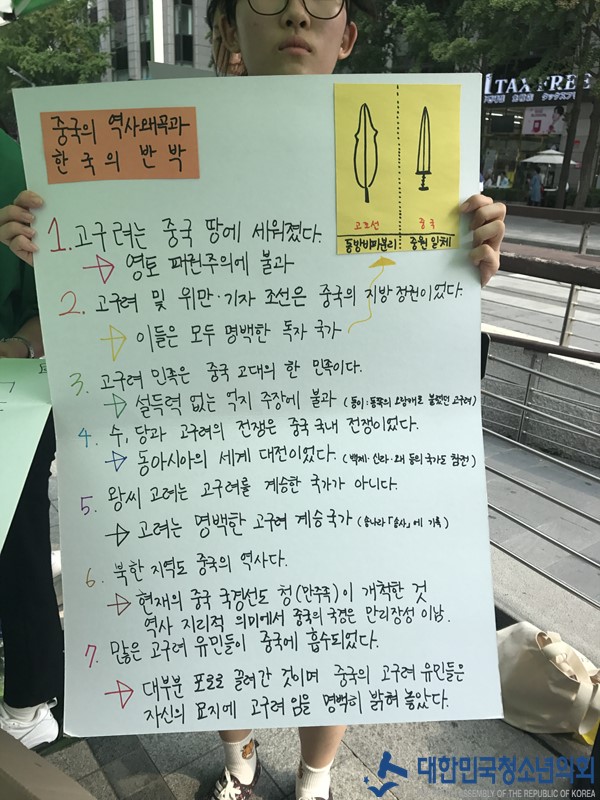 중국의 역사왜곡과
한국의 반박
고조선
중국
동방비파분리
중원일체
1. 고구려는 중국 땅에 세워졌다.
영토 패권주의에 불과
2. 고구려 및 위만·기자 조선은 중국의 지방정권이었다.
이들은 모두 명백한 독자 국가
3. 고구려 민족은 중국 고대의 한 민족이다.
설득력 없는 억지 주장에 불과 (동이:동쪽의 오랑캐로 불렸던 고구려)
4. 수, 당과 고구려의 전쟁은 중국 국내 전쟁이었다.
동아시아의 세계 대전이었다. (백제·신라·왜 등의 국가도 참전)
5. 왕씨 고려는 고구려를 계승한 국가가 아니다.
고려는 명백한 고구려 계승국가 (송나라 「송사」에 기록)
6. 북한 지역도 중국의 역사다.
현재의 중국 국경선도 청(만주족)이 개척한 것
역사 지리적 의미에서 중국의 국경은 만리장성 이남.
7. 많은 고구려 유민들이 중국에 흡수되었다.
대부분 포로로 끌려간 것이며 중국의 고구려 유민들은
자신의 묘지에 고구려 임을 명백히 밝혀 놓았다.
TAX FREE
대한민국청소년의회
ASSEMBLY OF THE REPUBLIC OF KOREA